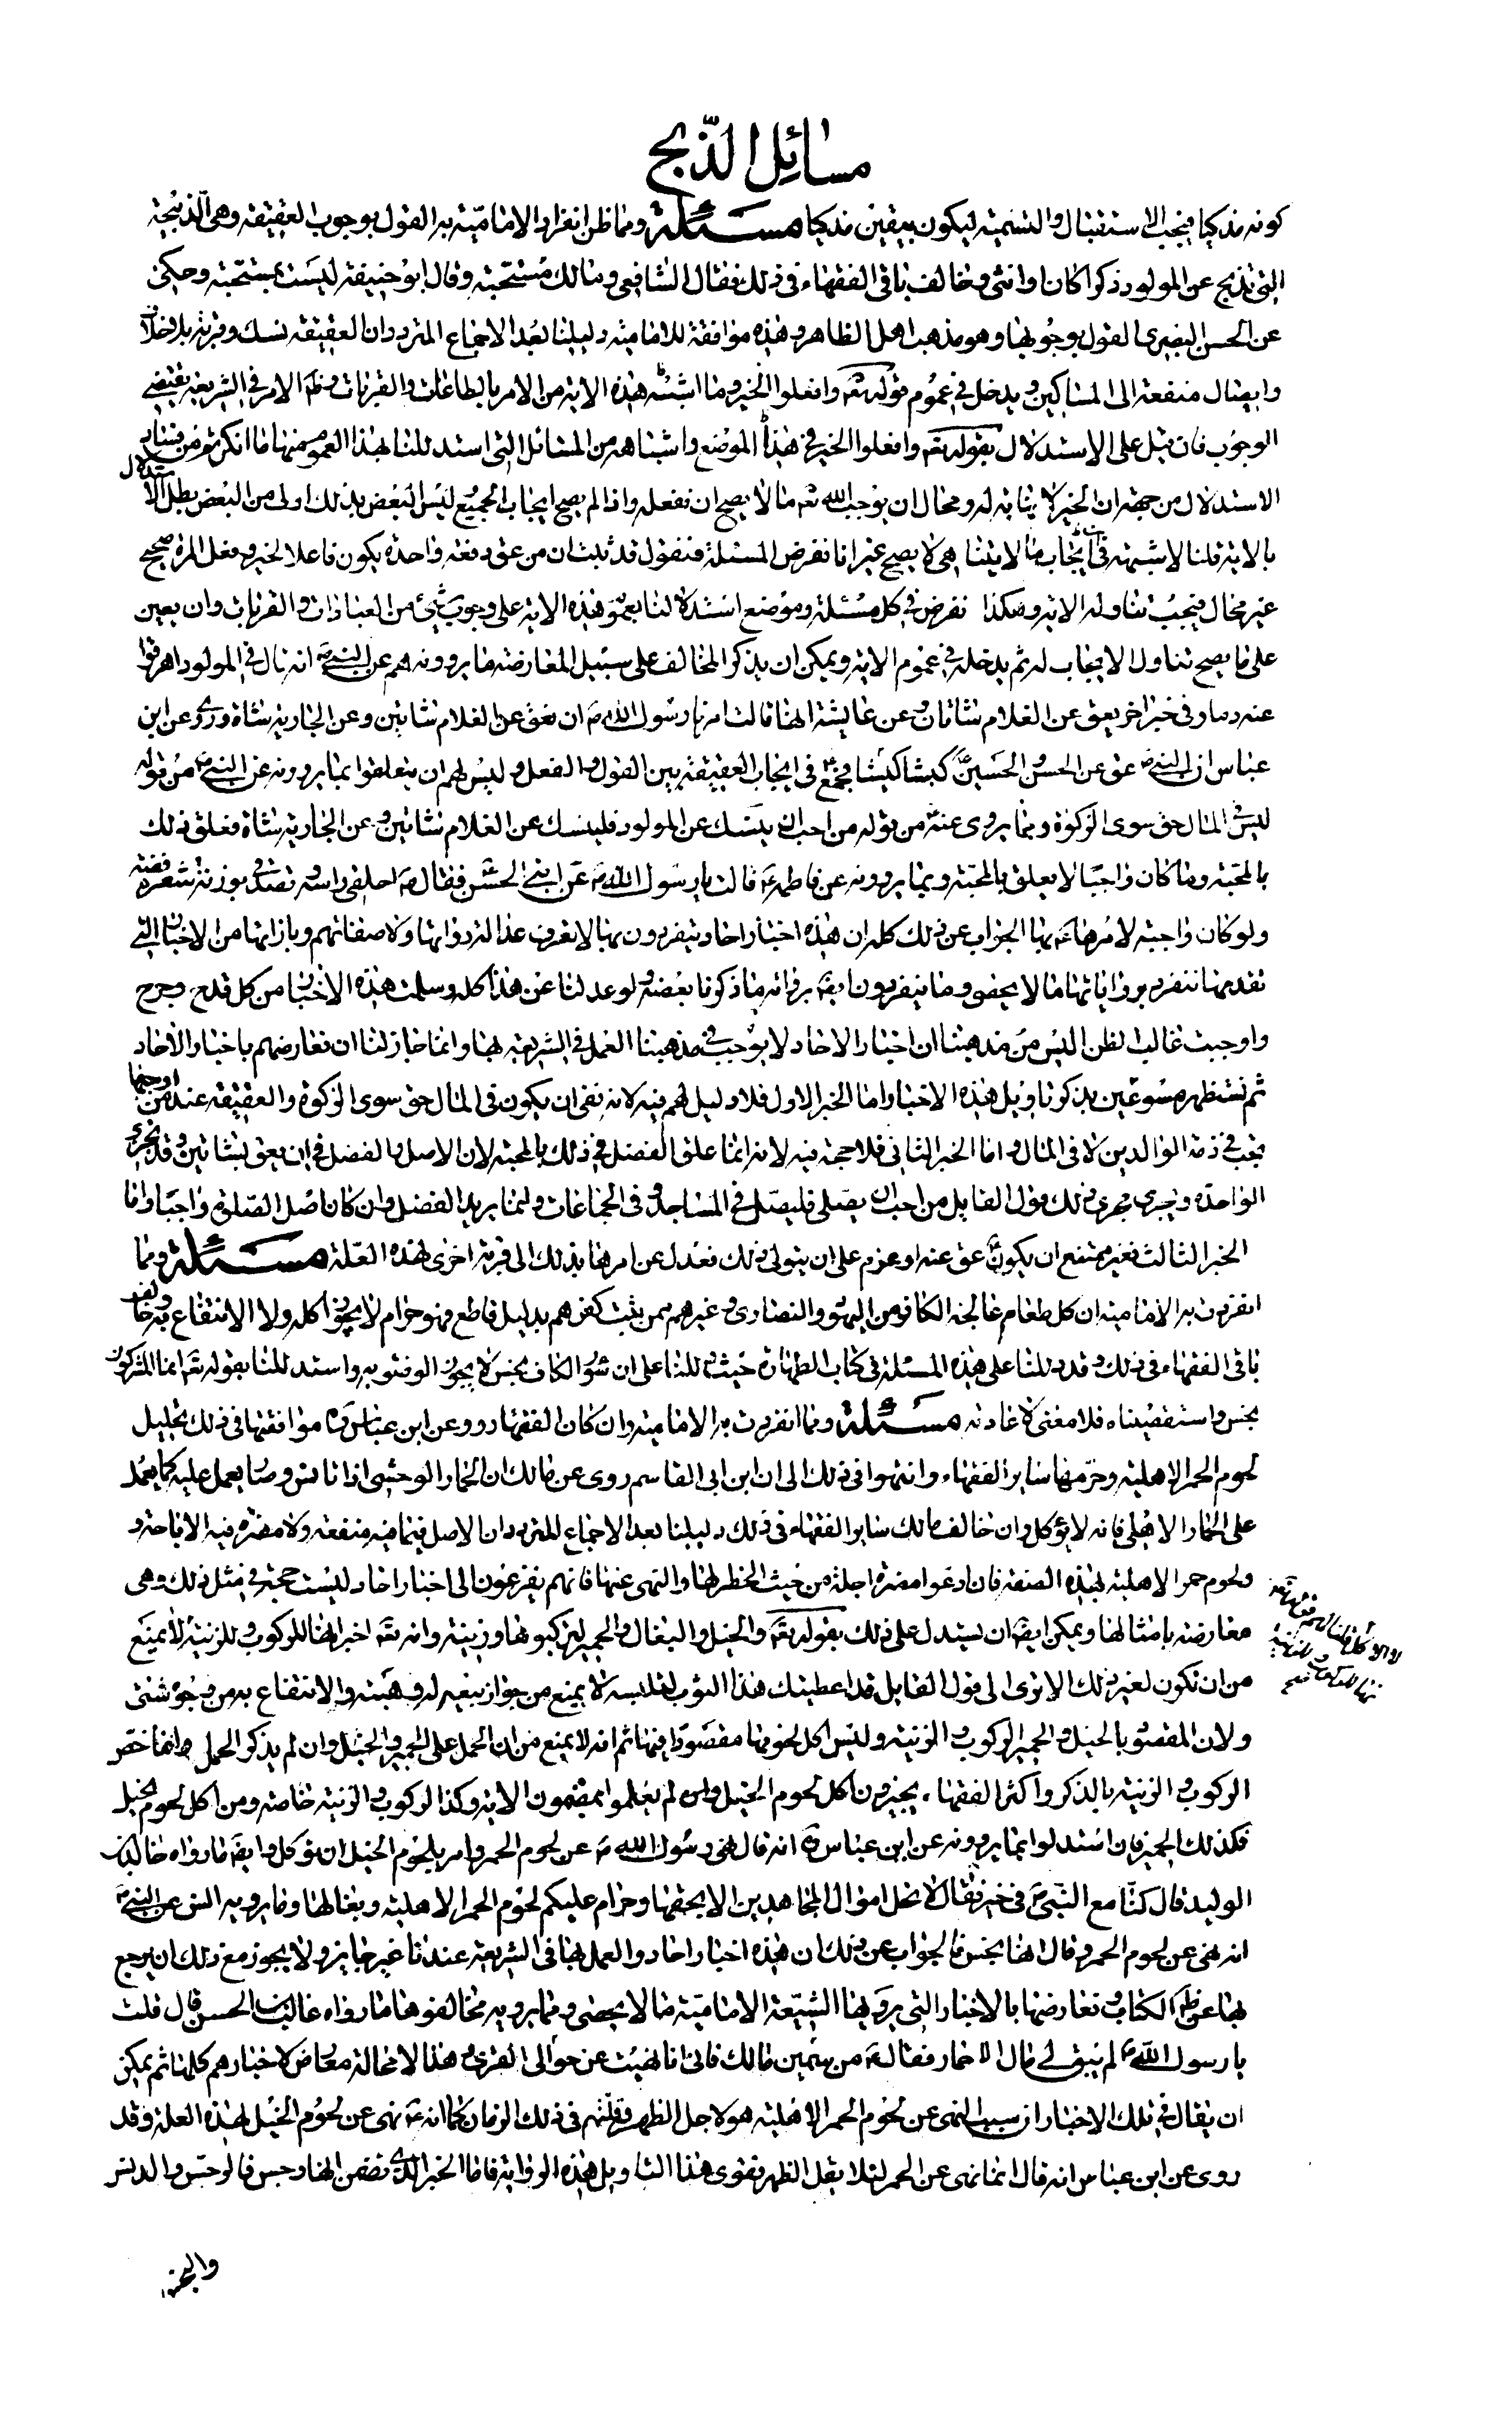 مسائل الذبح
كونه مذكيا فيجب الاستقبال والتسمية ليكون بيقين مذكيا مسئلة ومما ظن انفراد الامامية به القول بوجوب العقيقة وهى الذبيحة
التى تذبح عن المولود ذكرا كان او انثى وخالف باقى الفقهاء فى ذلك فقال الشافعى ومالك مستحبة وقال ابو حنيفة ليست بمستحبة وحكى
عن الحسن البصرى القول بوجوبها وهو مذهب اهل الظاهر وهذه موافقة للامامية دليلنا بعد الاجماع المتردد ان العقيقة نسك وقربة بلا خلاف
وايصال منفعة الى المساكين ويدخل فى عموم قوله تعـ وافعلوا الخير وما اشبه هذه الاية من الامر بالطاعات والقربات وظم الامر فى الشريعة يقتضى
الوجوب فان قيل على الاستدلال بقوله تعـ وافعلوا الخير فى هذا الموضع واشباهه من المسائل التى استدللنا بهذا العموم منها ما انكرتم من فساد
الاستدلال من جهة ان الخير لا نهاية له ومحال ان يوجب الله تعـ ما لا يصح ان نفعله واذا لم يصح ايجاب الجميع ليس البعض بذلك اولى من البعض بطل الاستدلال
بالاية قلنا لا شبهة فى ان ايجاب ما لا يتناهى لا يصح غير انا نفرض المسئلة فنقول قد ثبت ان من عق دفعة واحدة يكون فاعلا لخير وفعل المرة صحيح
غير محال فيجب تناوله الاية وهكذا نفرض فى كل مسئلة وموضع استدلالنا بعموم هذه الاية على وجوب شئ من العبادات والقربات وان يعين
على ما يصح تناول الايجاب له ثم يدخله فى عموم الاية ويمكن ان يذكر المخالف على سبيل المعارضة ما يروونه هم عن النبى ص انه قال فى المولود اهرقوا
عنه دما وفى خبر اخر يعق عن الغلام شاتان وعن عايشة انها قالت امرنا رسول الله ص ان نعق عن الغلام شاتين وعن الجارية شاة وروى عن ابن
عباس ان النبى ص عق عن الحسن والحسين ع كبشا كبشا فجمع فى ايجاب العقيقة بين القول والفعل وليس لهم ان يتعلقوا بما يروونه عن النبى ص من قوله
ليس فى المال حق سوى الزكوة وبما يروى عنه ص من قوله من احب ان ينسك عن المولود فلينسك عن الغلام شاتين وعن الجارية شاة فعلق ذلك
بالمحبة وما كان واجبا لا يعلق بالمحبة وبما يروونه عن فاطمة ع قالت يا رسول الله ص عن ابنى الحسن فقال ص احلقى راسه وتصدقى بوزنة شعره فضة
ولو كان واجبة لامرها ص بها الجواب عن ذلك كله ان هذه اخبار احاد ينفردون بها لا نعرف عدالة رواتها ولا صفاتهم وبازائها من الاخبار التى
نقدمها ننفرد برواياتها ما لا يحصى وما ينفردون ايضـ بروايه ما ذكرنا بعضه ولو عدلنا عن هذا كله وسلمت هذه الاخبار من كل قدح وجرح
واوجبت غالب الظن اليس من مذهبنا ان اخبار الاحاد لا يوجب فى مذهبنا العمل فى الشريعة بها وانما جاز لنا ان نعارضهم باخبار الاحاد
ثم نستظهر متبرعين بذكر تاويل هذه الاخبار اما الخبر الاول فلا دليل لهم فيه لانه نفى ان يكون فى المال حق سوى الزكوة والعقيقة عند من اوجبها
يجب فى ذمة الوالدين لا فى المال واما الخبر الثانى فلا حجة فيه لانه انما علق الفضل فى ذلك بالمحبة لان الاصل والفضل فى ان يعق بشاتين وقد تجزى
الواحدة ويجرى مجرى ذلك قول القايل من احب ان يصلى فليصل فى المساجد وفى الجماعات وانما يريد الفضل وان كان اصل الصلوة واجبا واما
الخبر الثالث فغير ممتنع ان يكون ص عق عنه او عزم على ان يتولى ذلك فعدل عن امرها بذلك الى قربة اخرى لهذه العلة مسئلة ومما
انفردت به الامامية ان كل طعام عالجه الكافر من اليهود والنصارى وغيرهم ممن يثبت كفرهم بدليل قاطع فهو حرام لا يجوز اكله ولا الانتفاع به وخالف
باقى الفقهاء فى ذلك وقد دللنا على هذه المسئلة فى كتاب الطهارة حيث دللنا على ان سؤر الكافر نجس لا يجوز الوضوء به واستدللنا بقوله تعـ انما المشركون
نجس واستقصيناه فلا معنى لاعادته مسئلة ومما انفردت به الامامية وان كان الفقهاء رووا عن ابن عباس ره موافقتها فى ذلك تحليل
لحوم الحمر الاهلية وحرمها ساير الفقهاء وانتهوا فى ذلك الى ان ابن ابى القاسم روى عن مالك ان الحمار الوحشى اذا تانس وصار يعمل عليه كما يعمل
على الحمار الاهلى فانه لا يؤكل وان خالف مالك ساير الفقهاء فى ذلك دليلنا بعد الاجماع المتردد ان الاصل فيما فيه منفعة ولا مضرة فيه الاباحة و
ولحوم حمر الاهلية بهذه الصفة فان ادعوا مضرة اجلة من حيث الحظر لها والنهى عنها فانهم يفزعون الى اخبار احاد ليست حجة فى مثل ذلك وهى
معارضة بامثالها ويمكن ايضـ ان يستدل على ذلك بقوله تعـ والخيل والبغال والحمير لتركبوها وزينة وانه تعـ اخبر انها للركوب وللزينة لا يمنع
من ان تكون لغير ذلك الا ترى الى قول القايل قد اعطيتك هذا الثوب لتلبسه لا يمنع من جواز بيعه له وهبته والانتفاع به من وجوه شتى
ولان المقصود بالخيل والحمير الركوب والزينة وليس اكل لحومها مقصودا فيها ثم انه لا يمنع من ان الحمل على الحمير والخيل وان لم يذكر الحمل وانما خص
الركوب والزينة بالذكر واكثر الفقهاء يجيزون اكل لحوم الخيل وان لم يعلموا بمضمون الاية وكذا الركوب والزينة خاصة ومن اكل لحوم الخيل
فكذلك الحمير فان استدلوا بما يروونه عن ابن عباس ره انه قال نهى رسول الله ص عن لحوم الحمر وامر بلحوم الخيل ان توكل وايضـ ما رواه خالد بن
الوليد قال كنا مع النبى ص فى خيبر فقال لا تحل اموال المجاهدين الا بحقها وحرام عليكم لحوم الحمر الاهلية وبغالها وما يرويه انس عن النبى ص
انه نهى عن لحوم الحمر وقال انها نجس فالجواب عن ذلك ان هذه اخبار احاد والعمل بها فى الشريعة عندنا غير جايز ولا يجوز مع ذلك ان يرجع
بها عن ظم الكتاب ونعارضها بالاخبار التى يرويها الشيعة الامامية ما لا يحصى ومما يرويه مخالفوها ما رواه غالب بن الحسن قال قلت
يا رسول الله ص لم يبق لى مال الا حمار فقال ص من سمين مالك فانى انما نهيت عن حوالى القرى وهذا لا محالة معارض لاخبارهم كلها ثم يمكن
ان يقال فى تلك الاخبار ان سبب النهى عن لحوم الحمر الاهلية هو لاجل الظهر وقلتهم فى ذلك الزمان كما انه ص نهى عن لحوم الخيل لهذه العلة وقد
روى عن ابن عباس انه قال انما نهى عن الحمر لئلا يقل الظهر فقوى هذا التاويل هذه الرواية فاما الخبر الذى تضمن انها رجس فالرجس والدنس